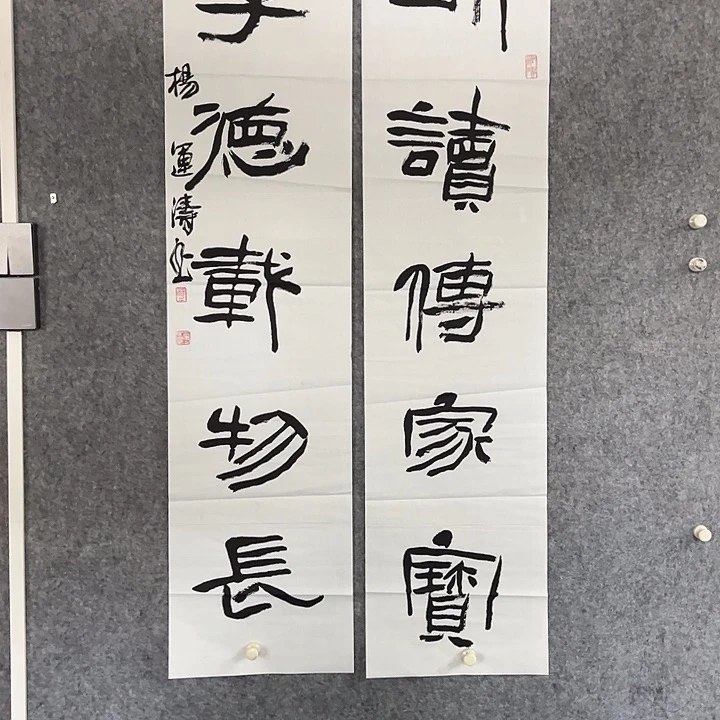 讀傳家寶
德載物長
楊運濤